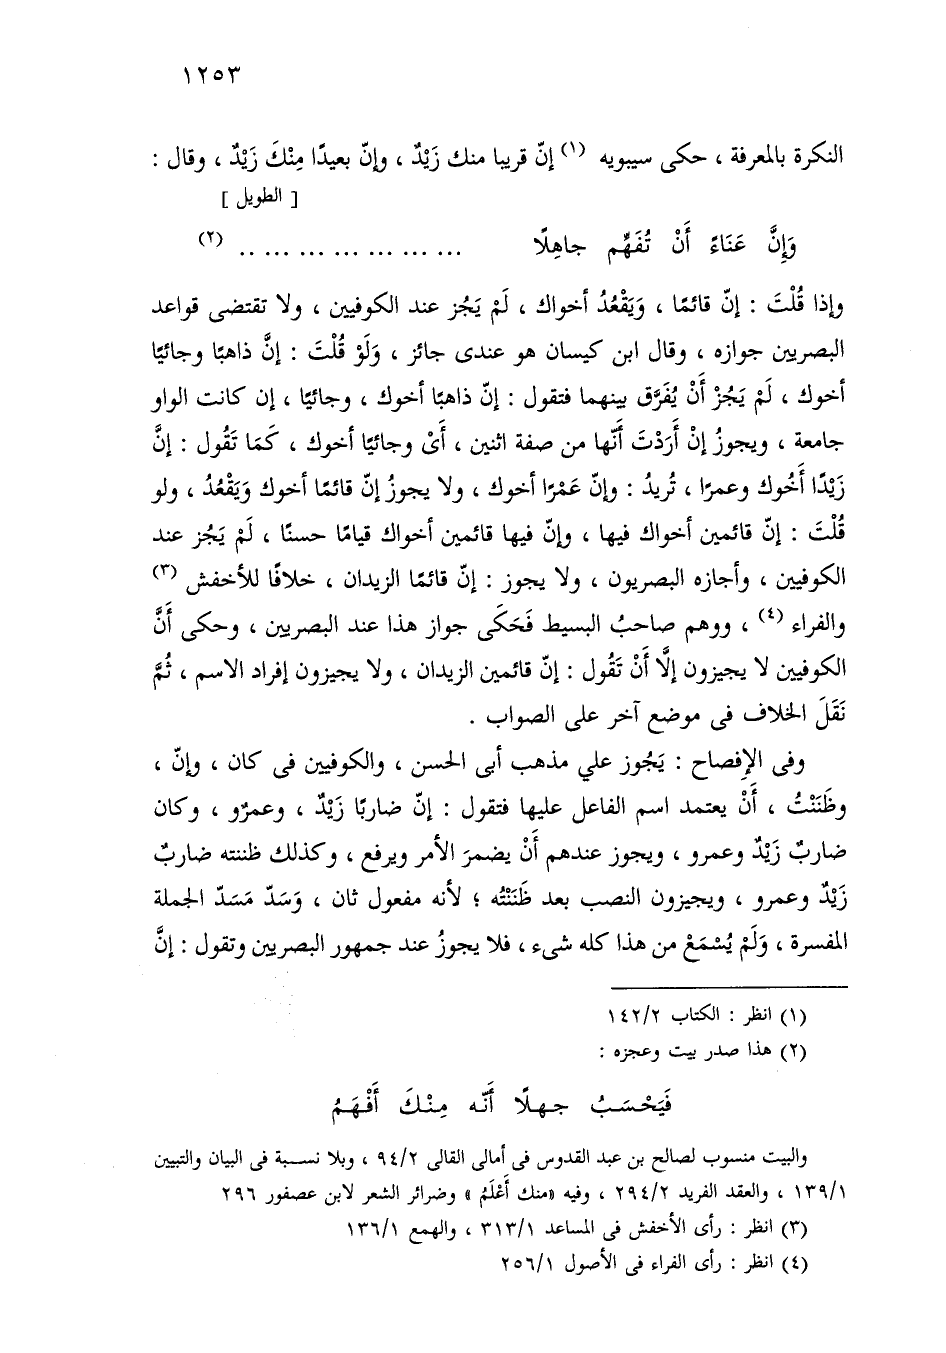 ١٢٥٣
النكرة بالمعرفة ، حكى سيبويه (١) إنّ قريبا منك زَيْدٌ ، وإنّ بعيدًا مِنْكَ زَيْدٌ ، وقال :
[ الطويل ]
وَإِنَّ عَنَاءً أَنْ تُفَهِّم جاهِلًا ... ... ... ... ... ... .. (٢)
وإذا قُلْتَ : إنّ قائمًا ، وَيَقْعُدُ أخواك ، لَمْ يَجُز عند الكوفيين ، ولا تقتضى قواعد
البصريين جوازه ، وقال ابن كيسان هو عندى جائز ، وَلَوْ قُلْتَ : إنَّ ذاهبًا وجائيًا
أخوك ، لَمْ يَجُزْ أَنْ يُفَرَّق بينهما فتقول : إنّ ذاهبًا أخوك ، وجائيًا ، إن كانت الواو
جامعة ، ويجوزُ إنْ أَرَدْتَ أَنّها من صفة اثنين ، أَىْ وجائيًا أخوك ، كَمَا تَقُول : إنَّ
زَيْدًا أَخُوك وعمرا ، تُريدُ : وإنّ عَمْرًا أخوك ، ولا يجوزُ إنّ قائمًا أخوك وَيَقْعُدُ ، ولو
قُلْتَ : إنّ قائمين أخواك فيها ، وإنّ فيها قائمين أخواك قيامًا حسنًا ، لَمْ يَجُز عند
الكوفيين ، وأجازه البصريون ، ولا يجوز : إنّ قائمًا الزيدان ، خلافًا للأخفش (٣)
والفراء (٤) ، ووهم صاحبُ البسيط فَحَكَى جواز هذا عند البصريين ، وحكى أَنَّ
الكوفيين لا يجيزون إلَّا أَنْ تَقُول : إنّ قائمين الزيدان ، ولا يجيزون إفراد الاسم ، ثُمَّ
نَقَلَ الخلاف فى موضع آخر على الصواب .
وفى الإفصاح : يَجُوز علي مذهب أبى الحسن ، والكوفيين فى كان ، وإنّ ،
وظَنَنْتُ ، أَنْ يعتمد اسم الفاعل عليها فتقول : إنّ ضاربًا زَيْدٌ ، وعمرٌو ، وكان
ضاربٌ زَيْدٌ وعمرو ، ويجوز عندهم أَنْ يضمرَ الأمر ويرفع ، وكذلك ظننته ضاربٌ
زَيْدٌ وعمرو ، ويجيزون النصب بعد ظَنَنْتُه ؛ لأنه مفعول ثان ، وَسَدّ مَسَدّ الجملة
المفسرة ، وَلَمْ يُسْمَعْ من هذا كله شىء ، فلا يجوزُ عند جمهور البصريين وتقول : إنَّ
(١) انظر : الكتاب ١٤٢/٢
(٢) هذا صدر بيت وعجزه :
فَيَحْسَبُ جهلًا أَنّه مِنْكَ أَفْهَمُ
والبيت منسوب لصالح بن عبد القدوس فى أمالى القالى ٩٤/٢ ، وبلا نسبة فى البيان والتبيين
١٣٩/١ ، والعقد الفريد ٢٩٤/٢ ، وفيه «منك أَعْلَمُ» وضرائر الشعر لابن عصفور ٢٩٦
(٣) انظر : رأى الأخفش فى المساعد ٣١٣/١ ، والهمع ١٣٦/١
(٤) انظر : رأى الفراء فى الأصول ٢٥٦/١